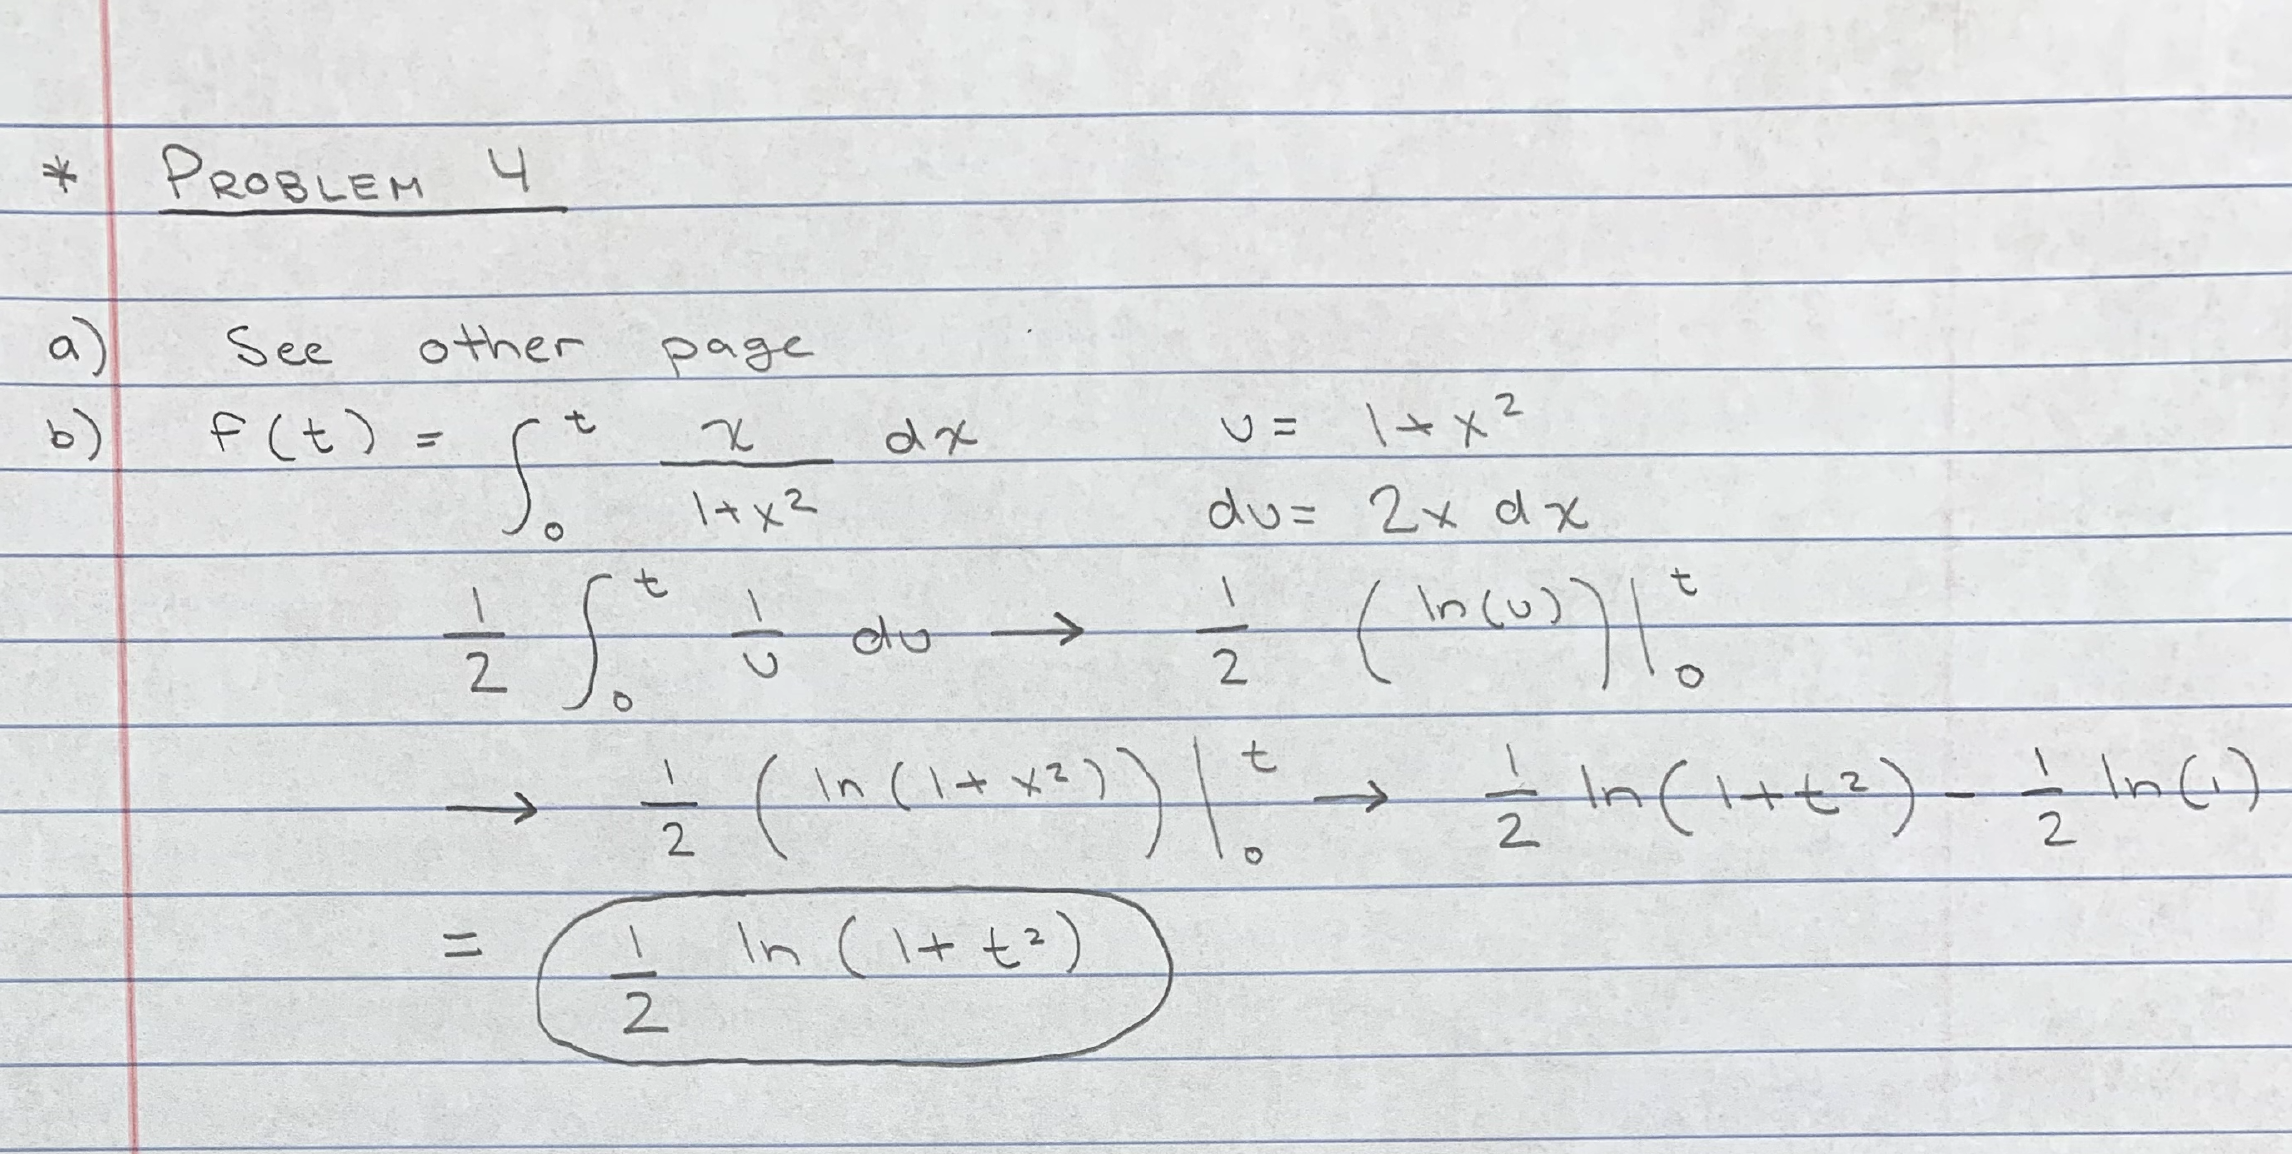 * PROBLEM 4
a) See other page
b) f(t) = ∫₀ᵗ x/(1+x²) dx u = 1+x²
du = 2x dx
1/2 ∫₀ᵗ 1/u du → 1/2 (ln(u))|₀ᵗ
→ 1/2 (ln(1+x²))|₀ᵗ → 1/2 ln(1+t²) - 1/2 ln(1)
= 1/2 ln(1+t²)